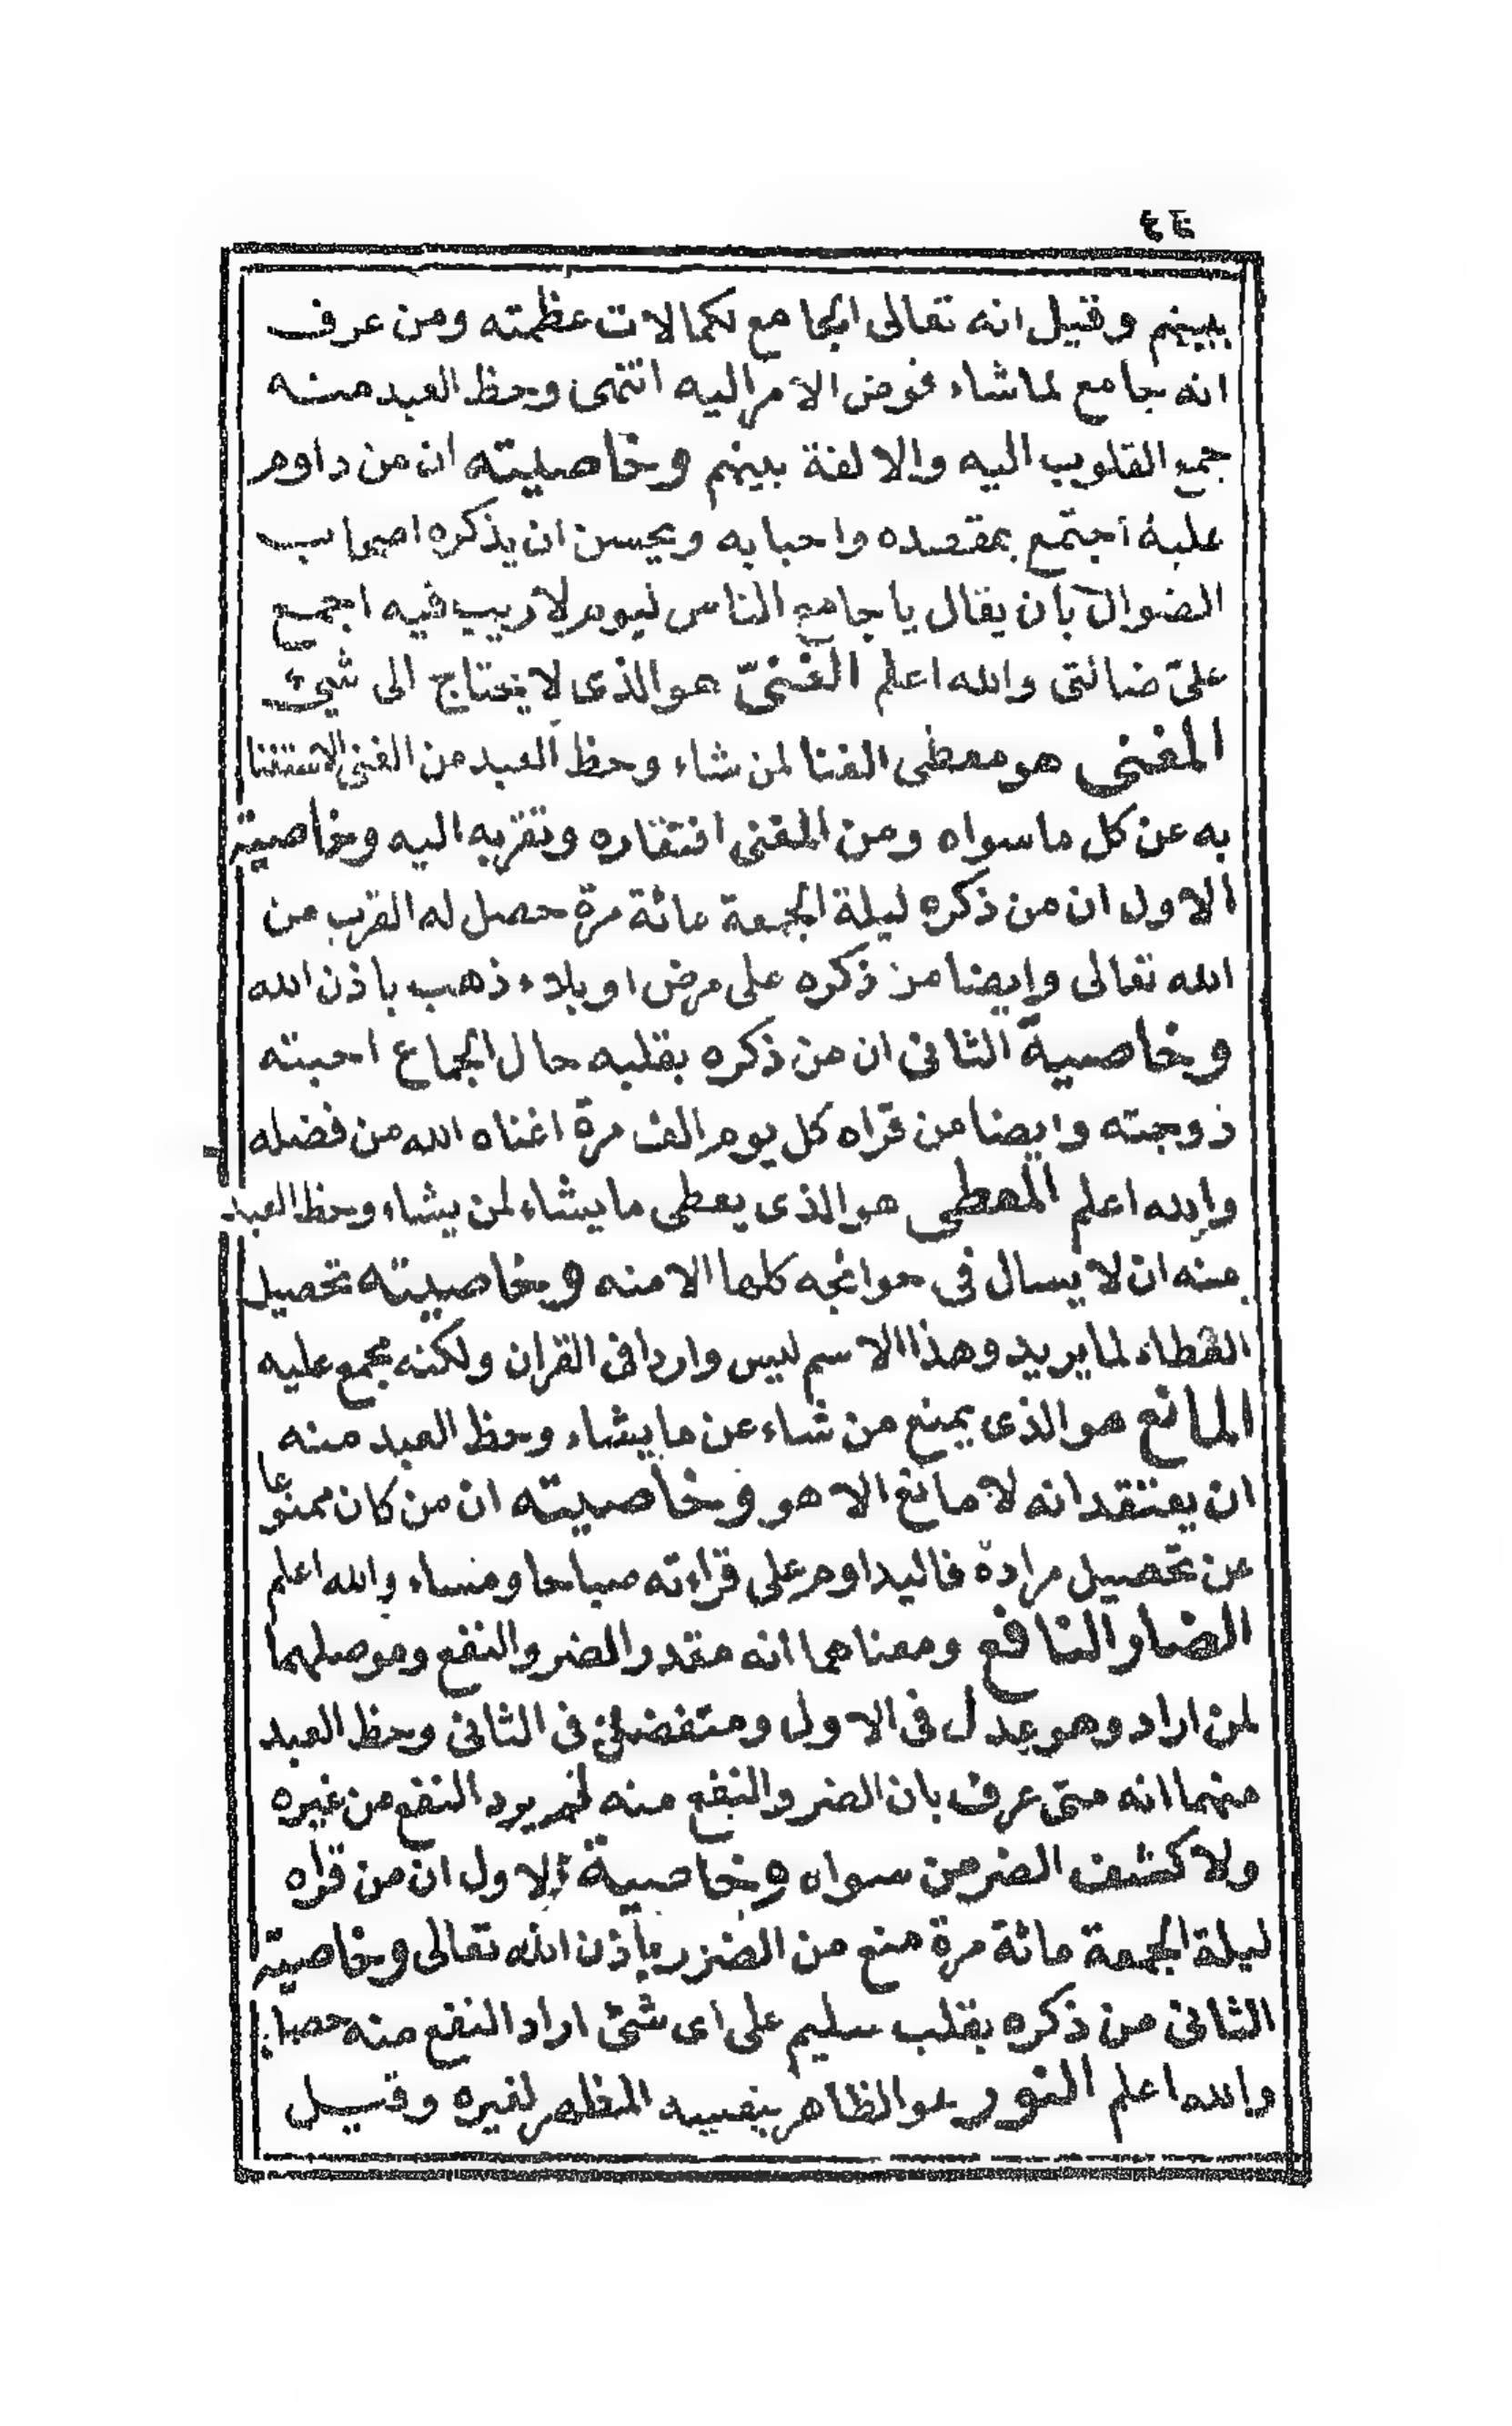 ٤٤
بينهم وقيل انه تعالى الجامع لكمالات عظمته ومن عرف
انه جامع لما شاء فوض الامر اليه انتهى وحظ العبد منه
جمع القلوب اليه والالفة بينهم وخاصيته ان من داوم
عليه اجتمع بمقصده واحبابه ويحسن ان يذكره اصحاب
الضوال بان يقال يا جامع الناس ليوم لا ريب فيه اجمع
علىّ ضالتى والله اعلم الغنىّ هو الذى لا يحتاج الى شيئ
المغنى هو معطى الغنا لمن شاء وحظ العبد من الغنى الاستغنا
به عن كل ما سواه ومن المغنى افتقاره وتقربه اليه وخاصية
الاول ان من ذكره ليلة الجمعة مائة مرة حصل له القرب من
الله تعالى وايضا من ذكره على مرض او بلاء ذهب باذن الله
وخاصية الثانى ان من ذكره بقلبه حال الجماع احبته
زوجته وايضا من قراه كل يوم الف مرة اغناه الله من فضله
والله اعلم المعطى هو الذى يعطى ما يشاء لمن يشاء وحظ العبد
منه ان لا يسال فى حوائجه كلها الا منه وخاصيته تحصيل
العطاء لما يريد وهذا الاسم ليس واردا فى القران ولكنه مجمع عليه
المانع هو الذى يمنع من شاء عن ما يشاء وحظ العبد منه
ان يعتقد انه لا مانع الا هو وخاصيته ان من كان ممنوعا
عن تحصيل مراده فاليداوم على قراءته صباحا ومساء والله اعلم
الضار النافع ومعناهما انه مقدر الضر والنفع وموصلهما
لمن اراد وهو عدل فى الاول ومتفضل فى الثانى وحظ العبد
منهما انه متى عرف بان الضر والنفع منه لم يرد النفع من غيره
ولا كشف الضر من سواه وخاصية الاول ان من قراه
ليلة الجمعة مائة مرة منع من الضرر باذن الله تعالى وخاصية
الثانى من ذكره بقلب سليم على اى شئ اراد النفع منه حصل
والله اعلم النور هو الظاهر بنفسه المظهر لغيره وقيل